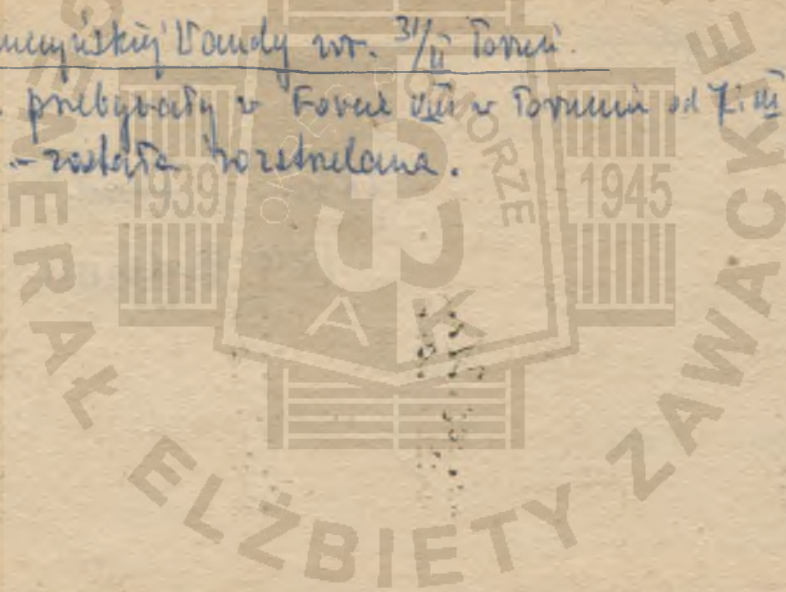 Wandy wr. 31/II Toruń.
przebywały w Forcie VIII w Toruniu od
– została rozstrzelana.
OKRĘG POMORZE
1939 1945
AK
GENERAŁ ELŻBIETY ZAWACKIEJ